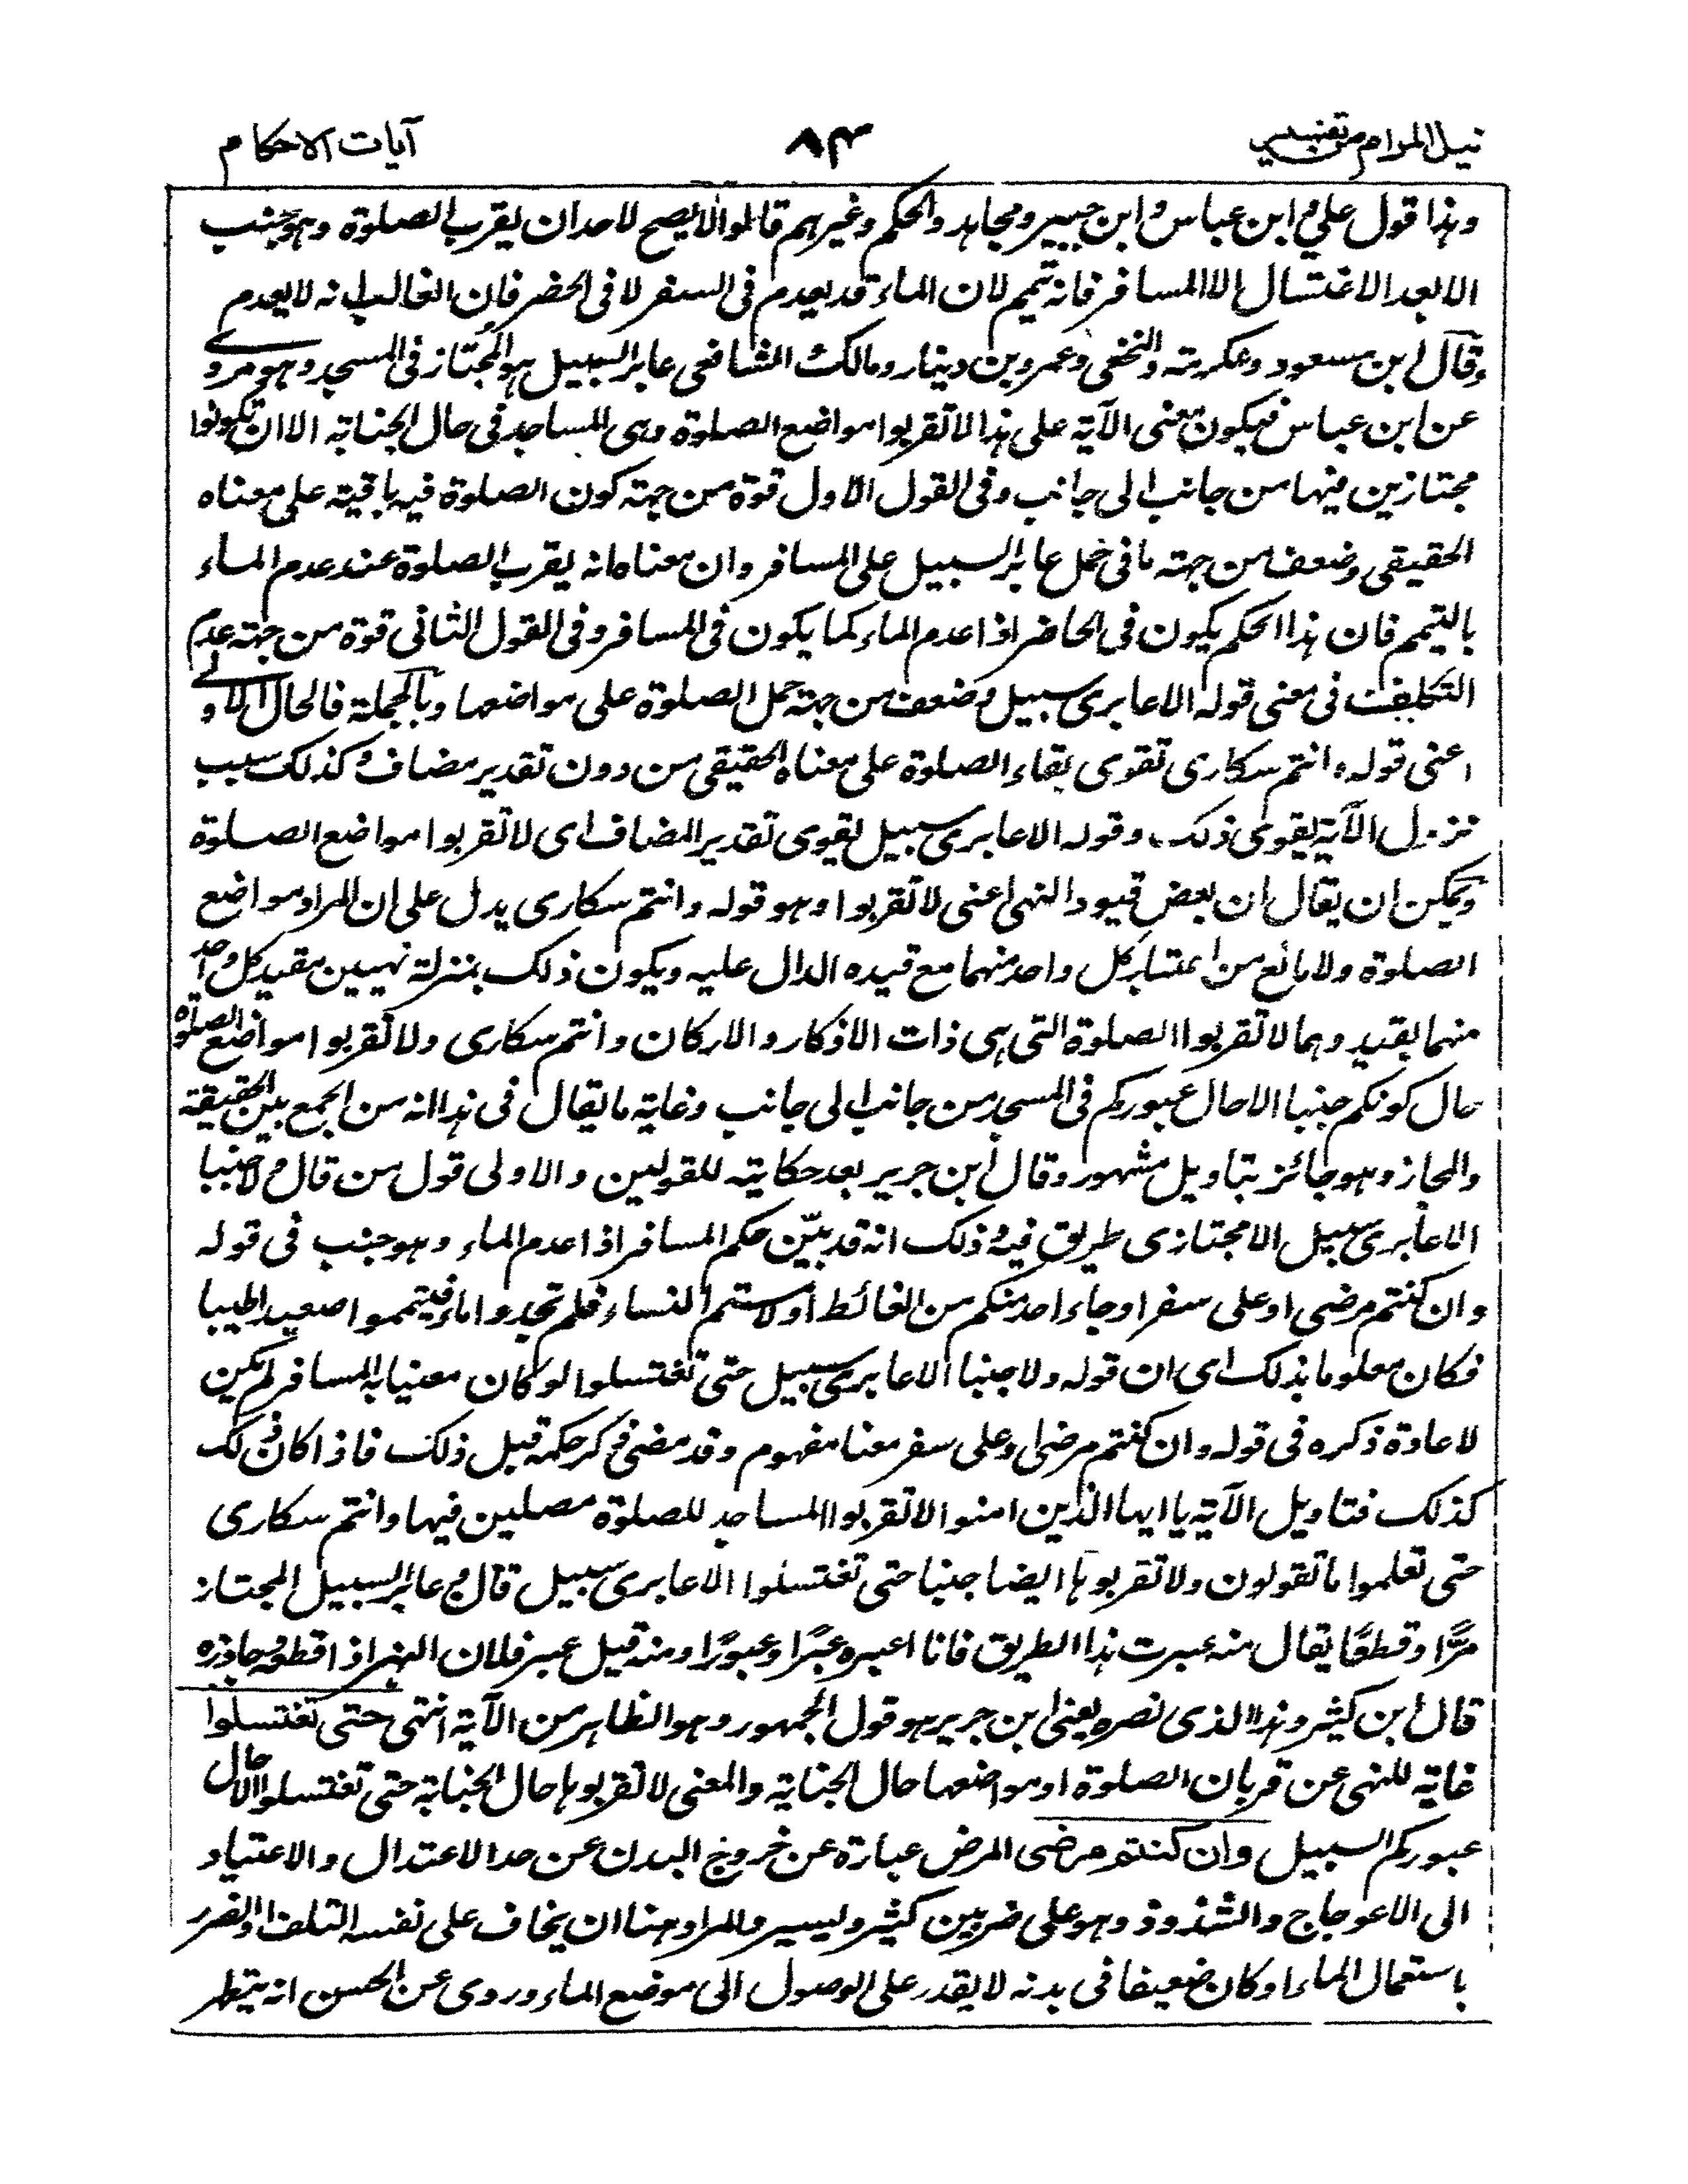 نيل المرام من تفسير
٨٤
آيات الاحكام
وهذا قول علي وابن عباس وابن جبير ومجاهد والحكم وغيرهم قالوا لا يصح لاحد ان يقرب الصلوة وهو جنب
الا بعد الاغتسال الا المسافر فانه تيمم لان الماء قد يعدم في السفر لا في الحضر فان الغالب انه لا يعدم
وقال ابن مسعود وعكرمة والنخعي وعمرو بن دينار ومالك الشافعي عابر السبيل هو المجتاز في المسجد وهو مروي
عن ابن عباس فيكون معنى الآية على هذا لا تقربوا مواضع الصلوة وهي المساجد في حال الجنابة الا ان تكونوا
مجتازين فيها من جانب الى جانب وفي القول الاول قوة من جهة كون الصلوة فيه باقية على معناه
الحقيقي وضعف من جهة ما في حمل عابر السبيل على المسافر وان معناه انه يقرب الصلوة عند عدم الماء
بالتيمم فان هذا الحكم يكون في الحاضر اذا عدم الماء كما يكون في المسافر وفي القول الثاني قوة من جهة عدم
التكليف في معنى قوله الا عابري سبيل وضعف من جهة حمل الصلوة على مواضعها وبالجملة فالحال الاولى
اعني قوله وانتم سكارى تقوى بقاء الصلوة على معناه الحقيقي من دون تقدير مضاف وكذلك سبب
نزول الآية يقوى ذلك وقوله الا عابري سبيل يقوى تقدير المضاف اى لا تقربوا مواضع الصلوة
ويمكن ان يقال ان بعض قيود النهي اعني لا تقربوا وهو قوله وانتم سكارى يدل على ان المراد مواضع
الصلوة ولا مانع من اعتبار كل واحد منهما مع قيده الدال عليه ويكون ذلك بمنزلة نهيين مقيد كل واحد
منهما بقيد وهما لا تقربوا الصلوة التي هي ذات الاذكار والاركان وانتم سكارى ولا تقربوا مواضع الصلوة
حال كونكم جنبا الا حال عبوركم في المسجد من جانب الى جانب وغاية ما يقال في هذا انه من الجمع بين الحقيقة
والمجاز وهو جائز بتاويل مشهور وقال ابن جرير بعد حكايته للقولين والاولى قول من قال ولا جنبا
الا عابري سبيل الا مجتازي طريق فيه وذلك انه قد بيّن حكم المسافر اذا عدم الماء وهو جنب في قوله
وان كنتم مرضى او على سفر او جاء احد منكم من الغائط او لامستم النساء فلم تجدوا ماء فتيمموا صعيدا طيبا
فكان معلوما بذلك اى ان قوله ولا جنبا الا عابري سبيل حتى تغتسلوا لو كان معنيا به المسافر لم يكن
لاعادة ذكره في قوله وان كنتم مرضى او على سفر معنا مفهوم وقد مضى ذكر حكمه قبل ذلك فاذا كان ذلك
كذلك فتاويل الآية يا ايها الذين امنوا لا تقربوا المساجد للصلوة مصلين فيها وانتم سكارى
حتى تعلموا ما تقولون ولا تقربوها ايضا جنبا حتى تغتسلوا الا عابري سبيل قال وعابر السبيل المجتاز
مرًّا وقطعًا يقال منه عبرت هذا الطريق فانا اعبره عبرًا وعبورًا ومنه قيل عبر فلان النهر اذا قطعه وجاوزه
قال ابن كثير وهذا الذي نصره يعني ابن جرير هو قول الجمهور وهو الظاهر من الآية انتهى حتى تغتسلوا
غاية للنهي عن قربان الصلوة او مواضعها حال الجنابة والمعنى لا تقربوها حال الجنابة حتى تغتسلوا الا حال
عبوركم السبيل وان كنتم مرضى المرض عبارة عن خروج البدن عن حد الاعتدال والاعتياد
الى الاعوجاج والشذوذ وهو على ضربين كثير ويسير والمراد هنا ان يخاف على نفسه التلف او الضرر
باستعمال الماء او كان ضعيفا في بدنه لا يقدر على الوصول الى موضع الماء وروى عن الحسن انه يتطهر